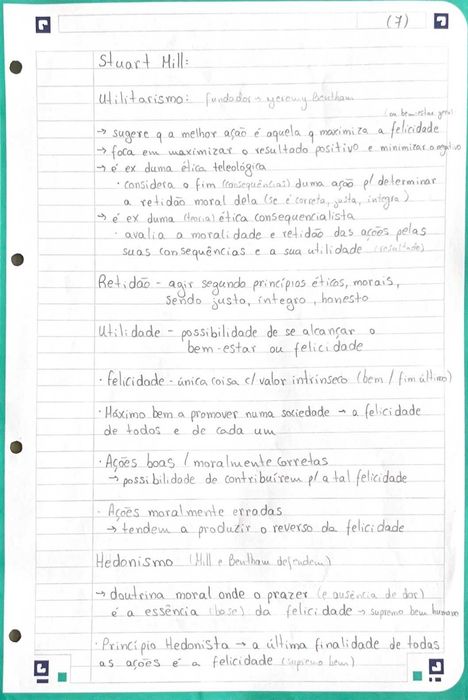 (7)
Stuart Mill:
Utilitarismo: fundador → Jeremy Bentham
(ou bem-estar geral)
→ sugere q a melhor ação é aquela q maximiza a felicidade
→ foca em maximizar o resultado positivo e minimizar o negativo
→ é ex duma ética teleológica
· considera o fim (consequências) duma ação p/ determinar
a retidão moral dela (se é correta, justa, íntegra)
→ é ex duma (teoria) ética consequencialista
· avalia a moralidade e retidão das ações pelas
suas consequências e a sua utilidade (resultado)
Retidão - agir segundo princípios éticos, morais,
sendo justo, íntegro, honesto
Utilidade - possibilidade de se alcançar o
bem-estar ou felicidade
· Felicidade - única coisa c/ valor intrínseco (bem / fim último)
· Máximo bem a promover numa sociedade → a felicidade
de todos e de cada um
· Ações boas / moralmente corretas
→ possibilidade de contribuírem p/ a tal felicidade
· Ações moralmente erradas
→ tendem a produzir o reverso da felicidade
Hedonismo (Mill e Bentham defendem)
→ doutrina moral onde o prazer (e ausência de dor)
é a essência (base) da felicidade → supremo bem humano
· Princípio Hedonista → a última finalidade de todas
as ações é a felicidade (supremo bem)